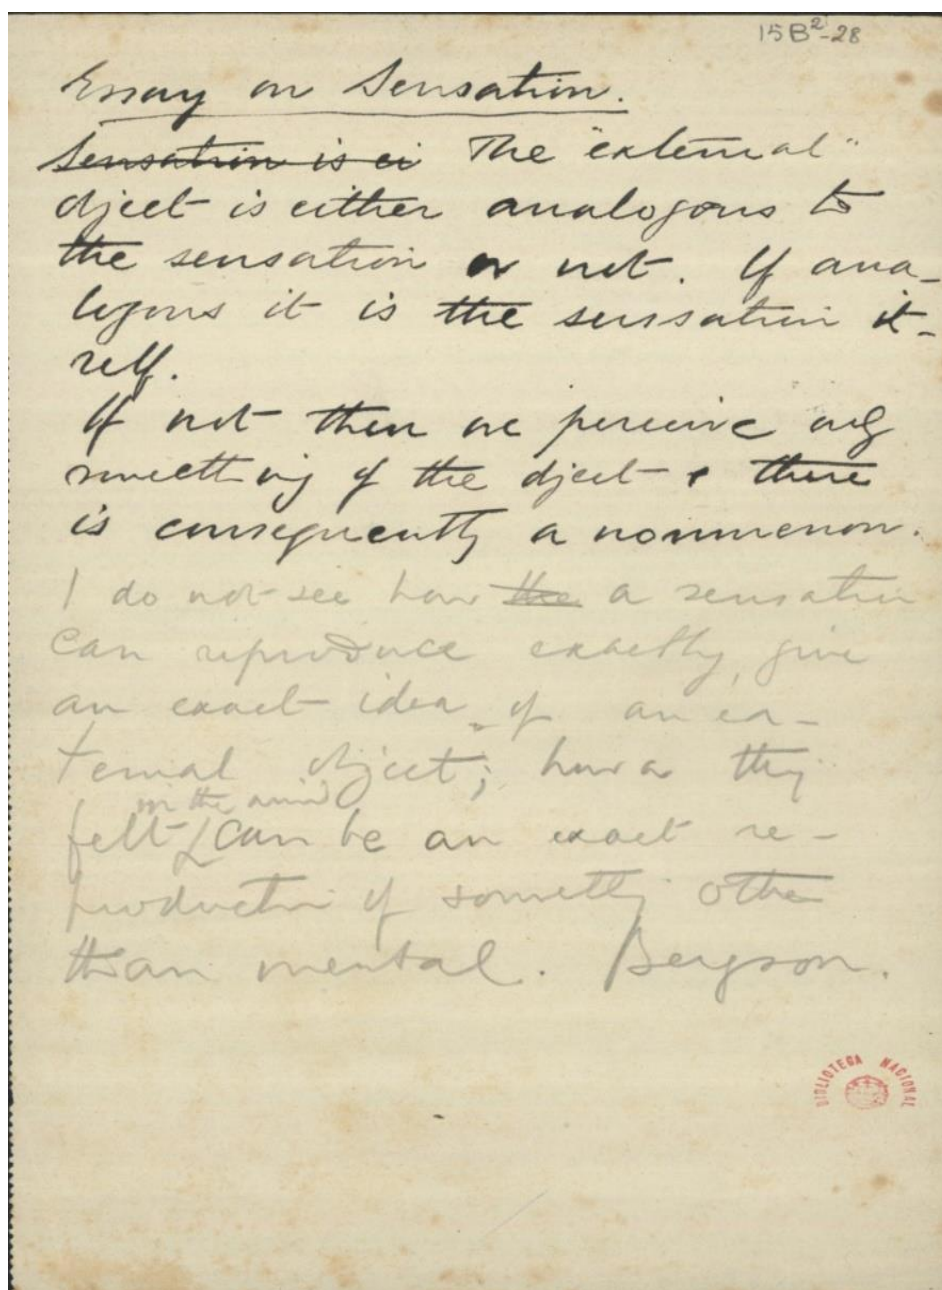 15B²-28
Essay on Sensation.
Sensation is ei The "external"
object is either analogous to
the sensation or not. If ana-
logous it is the sensation it-
self.
If not then we perceive only
something of the object & there
is consequently a noumenon.
I do not see how the a sensation
can reproduce exactly, give
an exact idea of an ex-
ternal object; how a thing
in the mind
felt can be an exact re-
production of something other
than mental. Bergson.
BIBLIOTECA NACIONAL